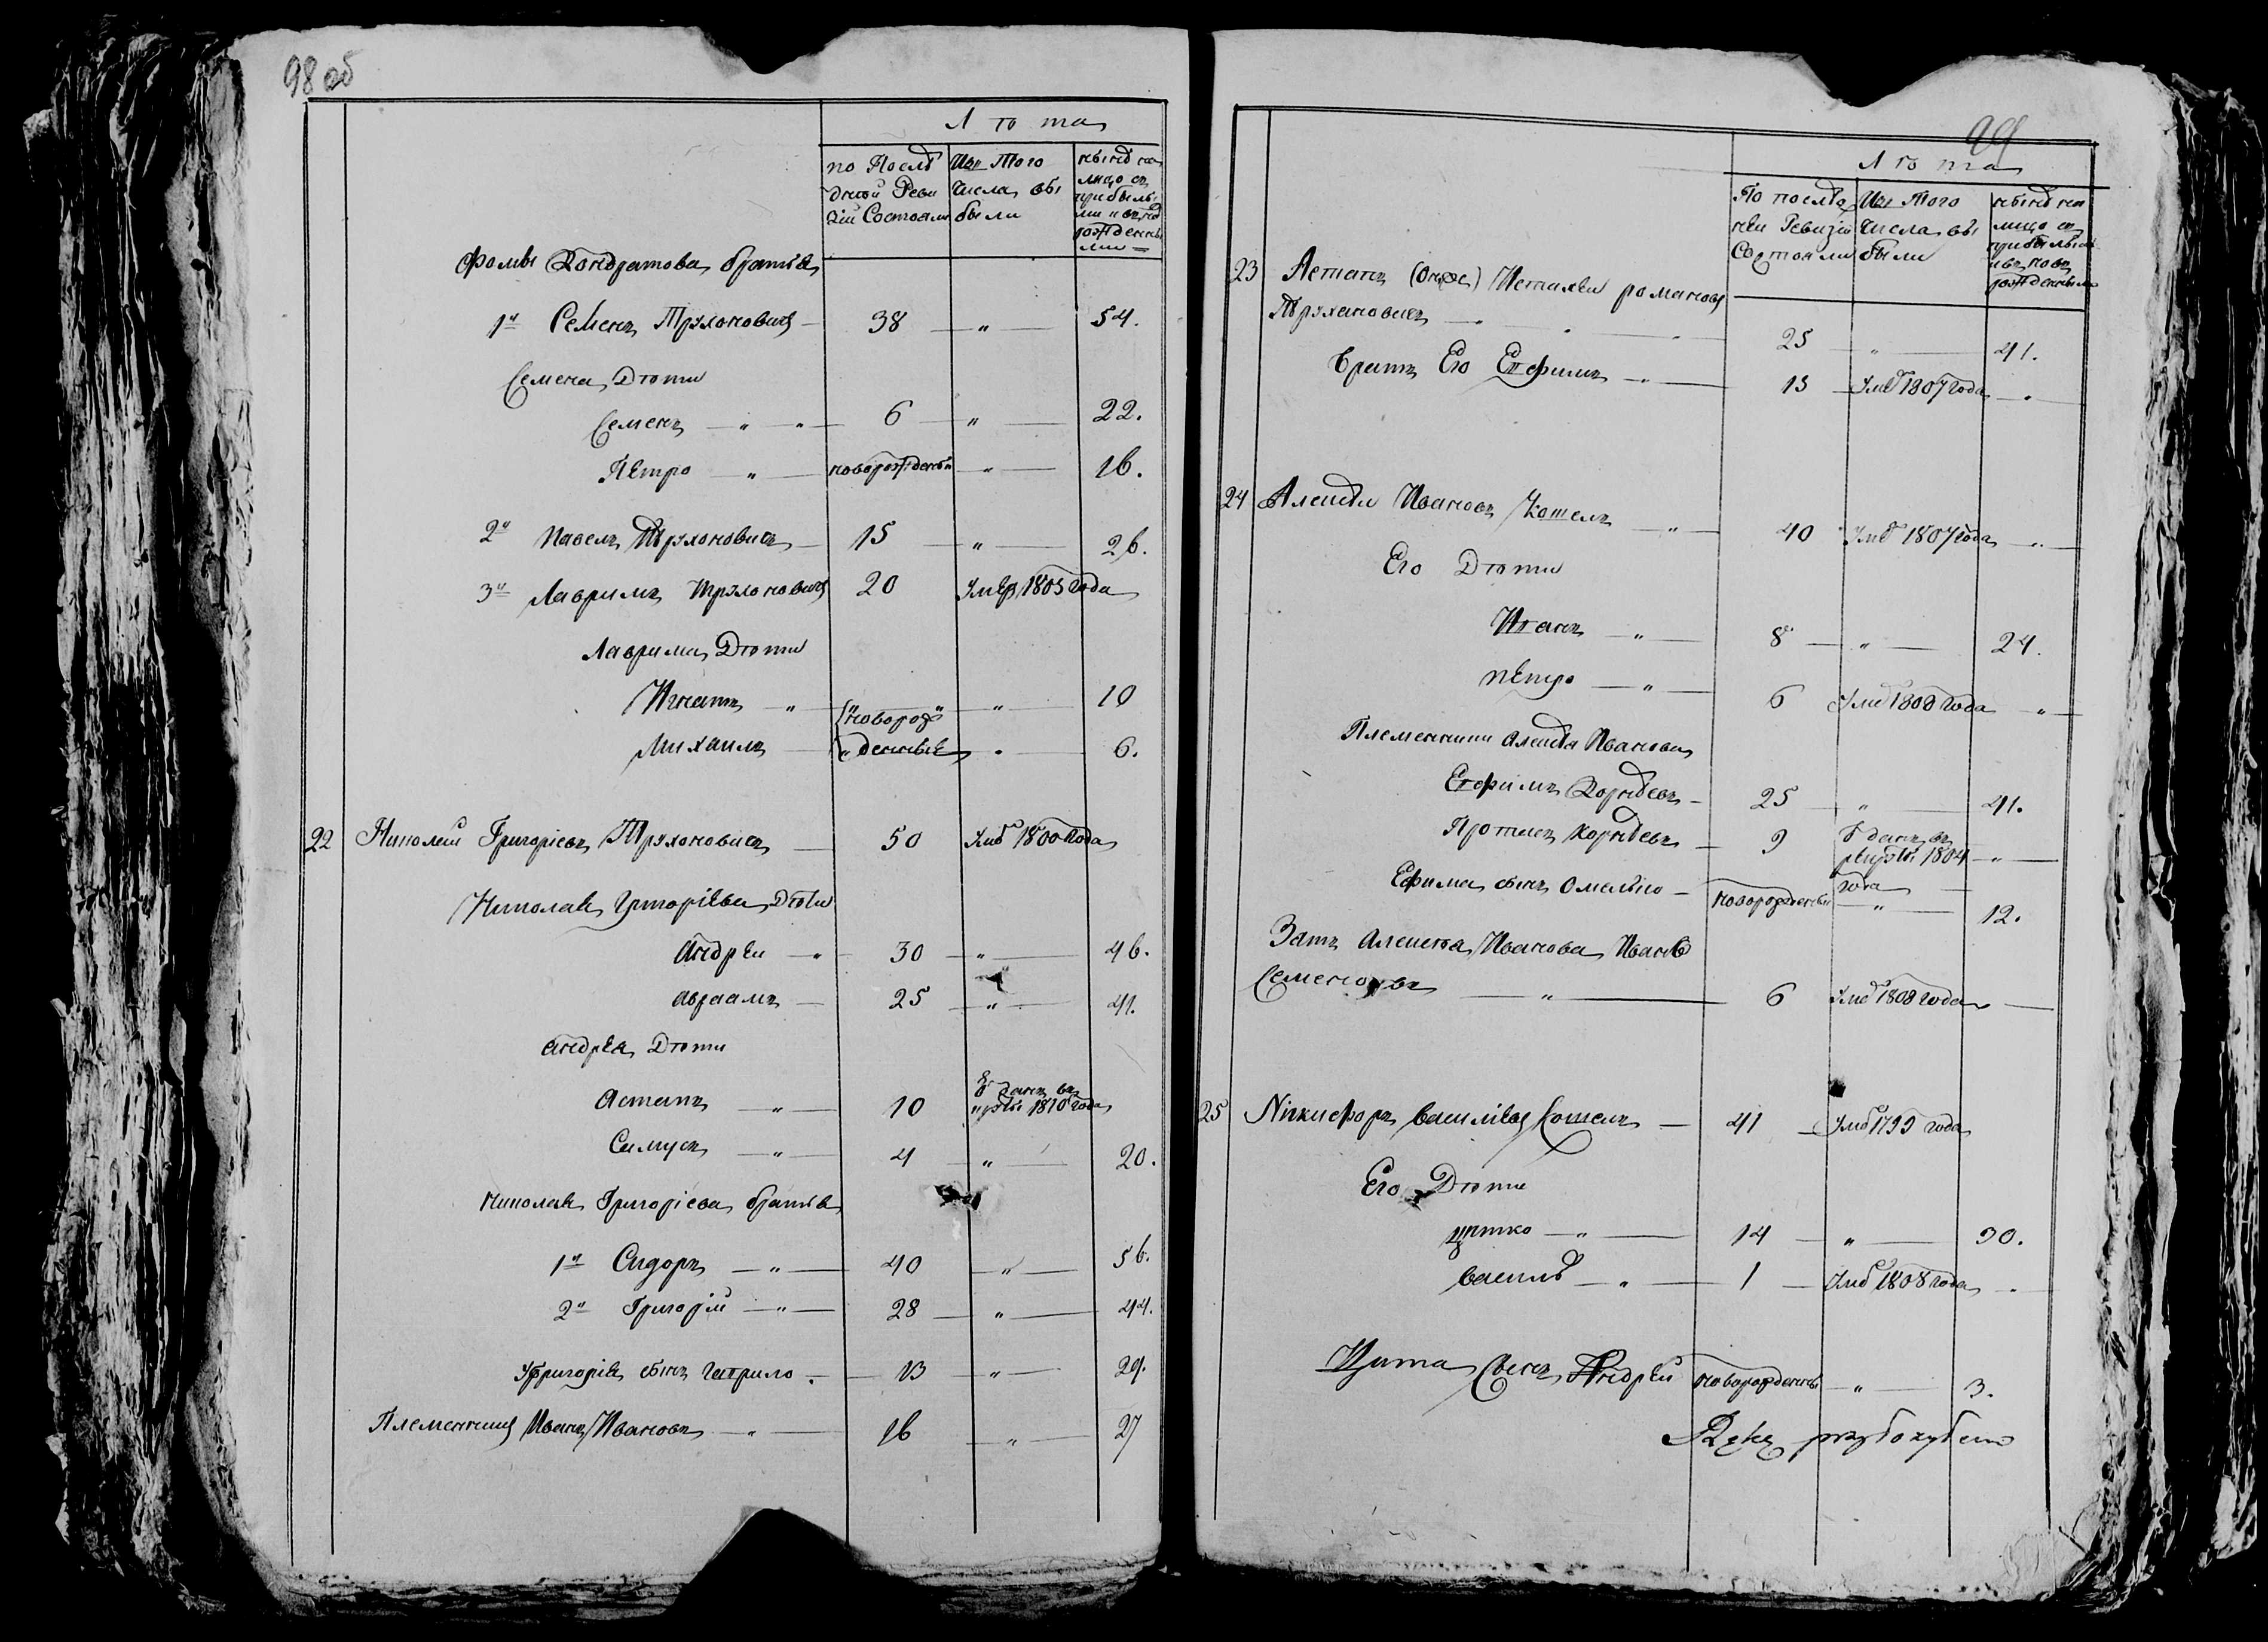 98 об
Лѣта
по Послѣ
дней Реви
зіи Состояли
Изъ Того
Числа вы
были
нынѣ на
лицо съ
прибылы
ми и въ но
рожденны
ми
Фомы Кондратова братья
1й Семенъ Трухоновичъ — 38 — " — 54.
Семена Дѣти
Семенъ — " — " — 6 — " — 22.
Петро — " — новорожденны — " — 16.
2й Павелъ Трухоновичъ — 15 — " — 26.
3й Лавримъ Трухоновичъ 20 Умеръ 1805 года
Лаврима Дѣти
Игнатъ — " — новорож — " — 10
Михаилъ — денные — " — 6.
22 Николай Григоріевъ Трухоновичъ — 50 Умѣ 1800 года
Николая Григоріева Дѣти
Андреи — " — 30 — " — 46.
Авраамъ — 25 — " — 41.
Андрея Дѣти
Астапъ — " — 10 данъ въ
1810 года
Самусь — " — 4 — " — 20.
Николая Григоріева братья
1й Сидоръ — " — 40 — " — 56.
2й Григорій — " — 28 — " — 44.
У Григорія сынъ Гаврило — 13 — " — 29.
Племенникъ Иванъ Ивановъ — " — 16 — " — 27
99
Лѣта
По послѣд
ней Ревизіи
Состояли
Изъ Того
Числа вы
были
нынѣ на
лицо съ
прибылым
и въ новъ
рожденным
23 Астапъ Романовъ
Трухановичъ — " — 25 — " — 41.
Братъ Его Ефимъ — " — 15 — Умѣ 1807 года — "
24 Алексѣй Ивановъ Кошель — " — 40 Умѣ 1807 года — "
Его Дѣти
Иванъ — " — 8 — " — 24.
Петро — " — 6 Умѣ 1808 года — "
Племенники Алексѣя Иванова
Ефимъ Корнѣевъ — 25 — " — 41.
Корнѣевъ — 9 данъ въ
рекруты 1804 — " —
года
Ефима сынъ Омелько — новорожденны — " — 12.
Зять Алексѣя Иванова Иванъ
Семеновъ — " — 6 Умѣ 1808 года —
25 Никифоръ Василіевъ Кошель — 41 — Умѣ 1799 года
Его Дѣти
— " — 14 — " — 30.
Василь — " — 1 — Умѣ 1808 года — "
Сынъ Андрей новорожденны — " — 3.